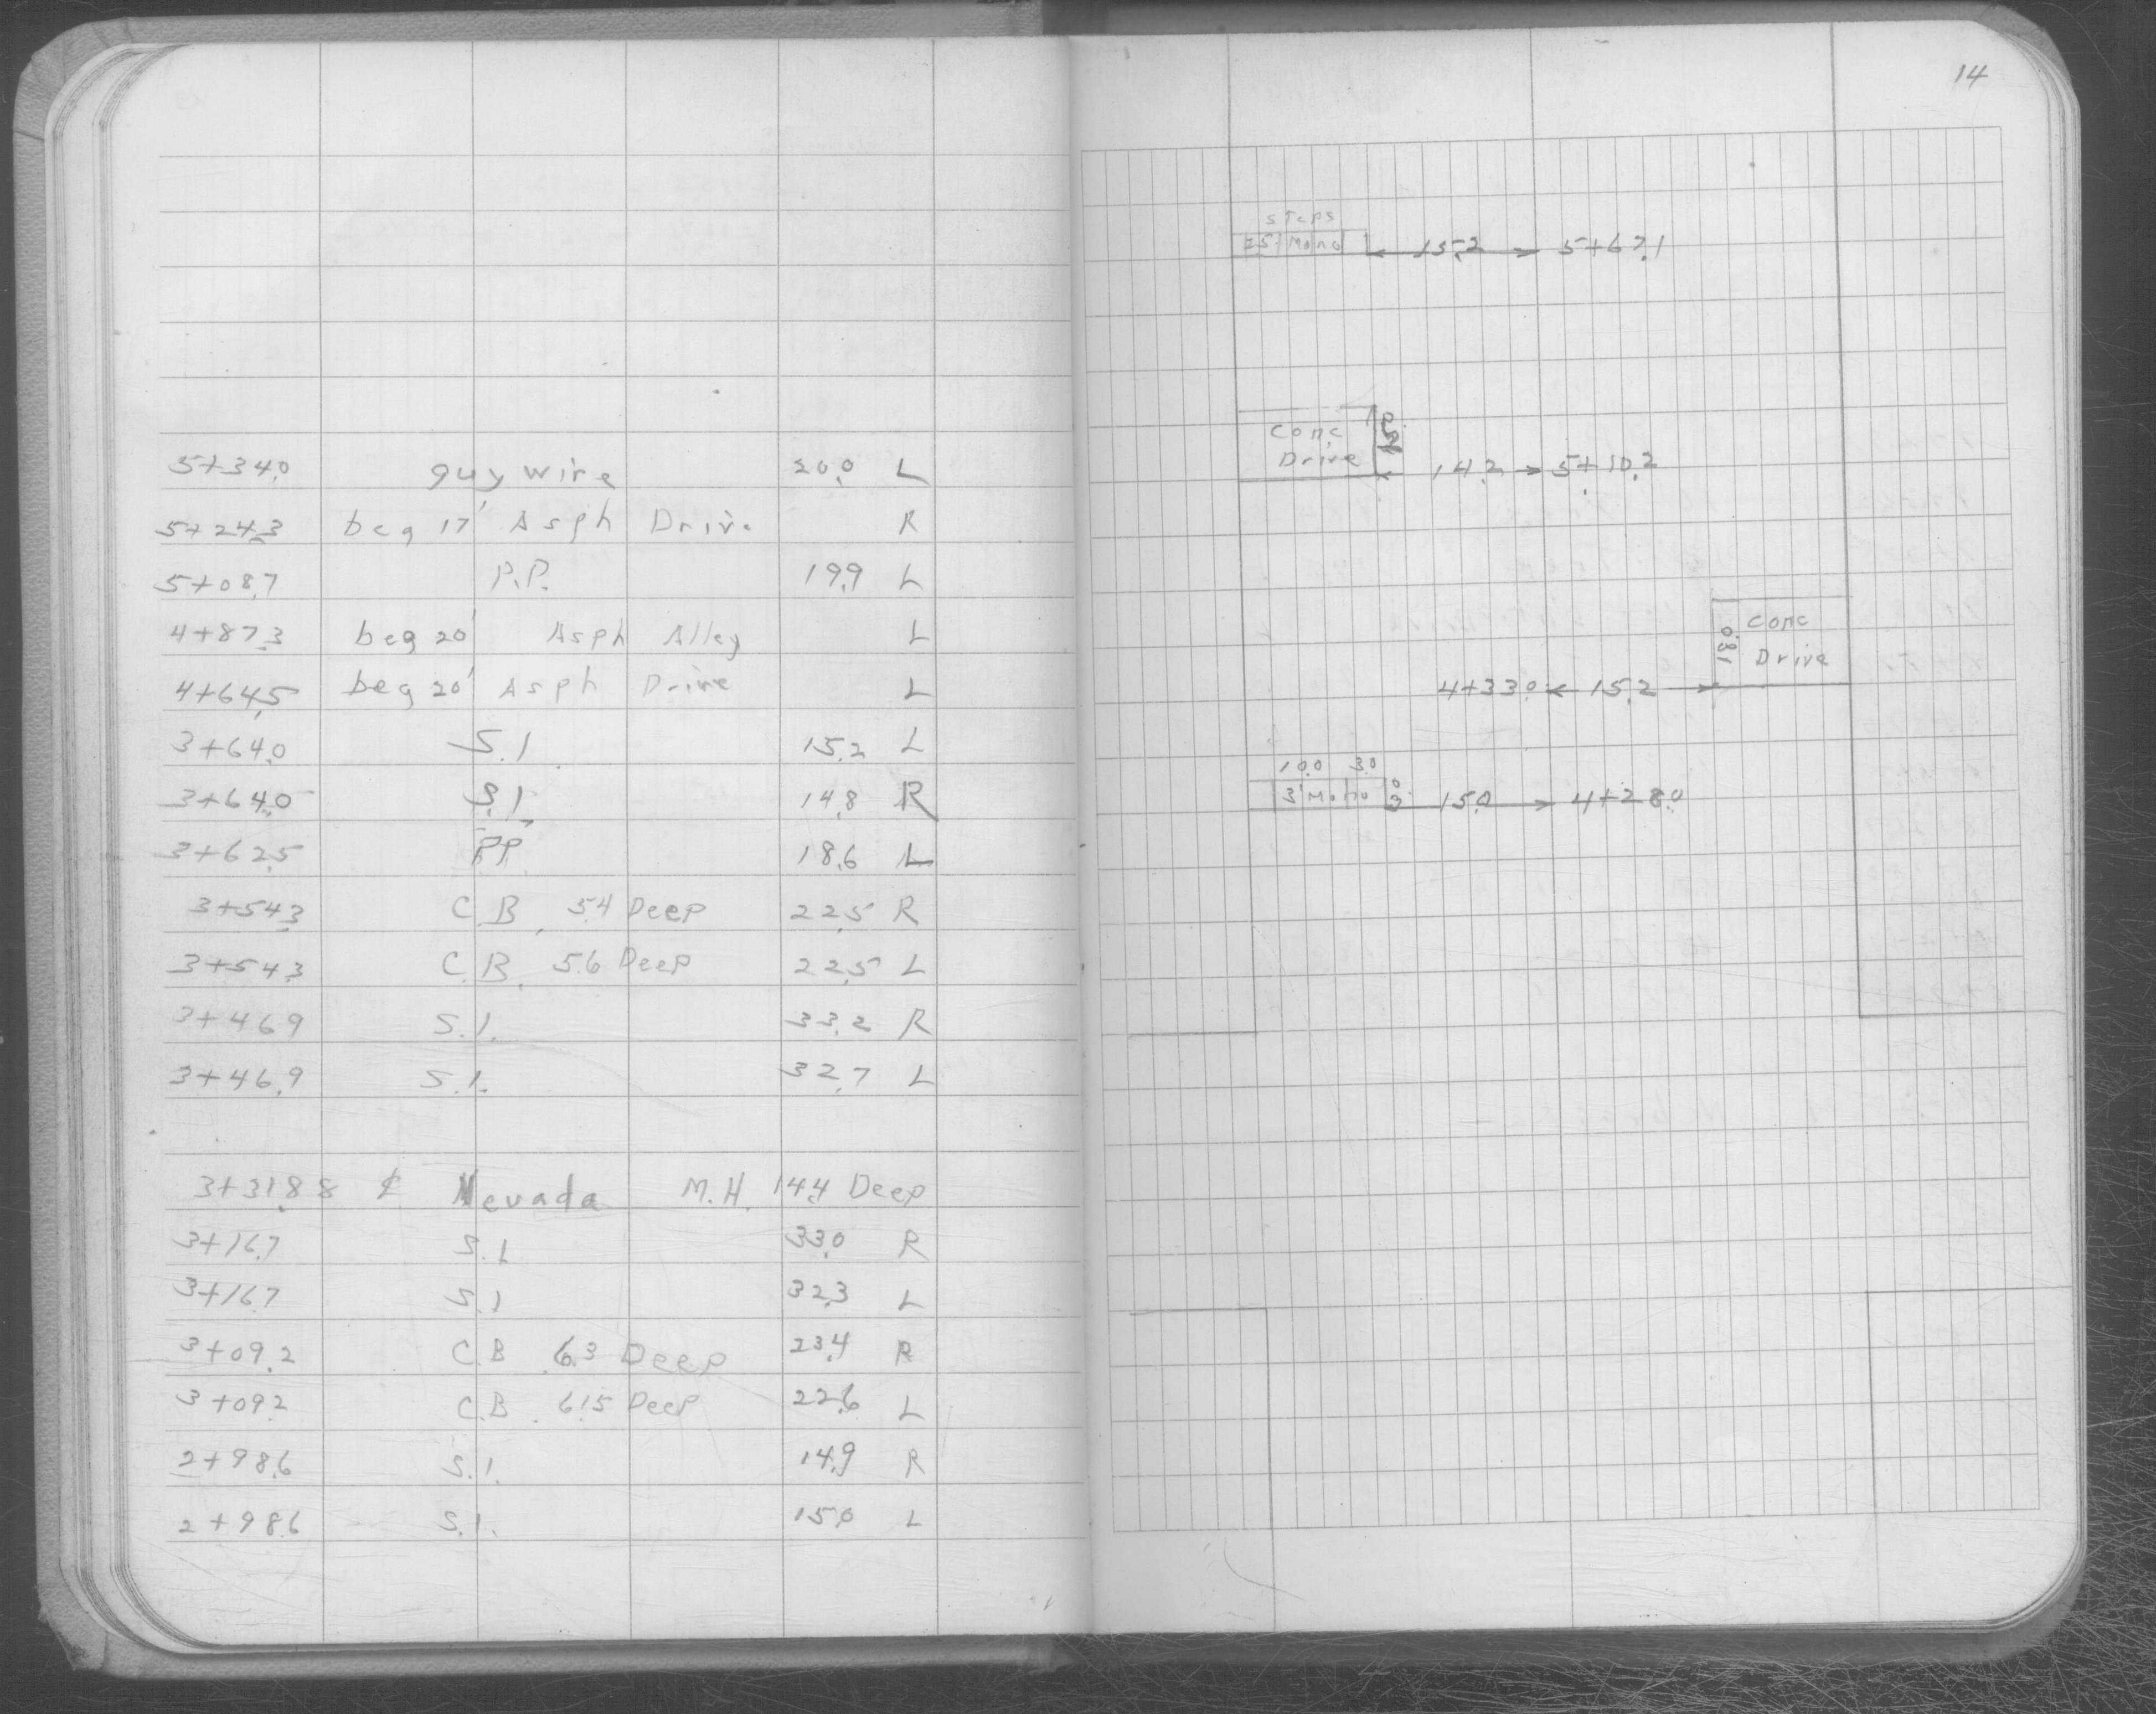 5+34.0 guy wire 20.0 L
5+24.3 beg 17' Asph Drive R
5+08.7 P.P. 19.9 L
4+87.3 beg 20' Asph Alley L
4+64.5 beg 20' Asph Drive L
3+64.0 S.I. 15.2 L
3+64.0 S.I. 14.8 R
3+62.5 P.P. 18.6 L
3+54.3 C.B. 5.4 Deep 22.5 R
3+54.3 C.B. 5.6 Deep 22.5 L
3+46.9 S.I. 33.2 R
3+46.9 S.I. 32.7 L
3+31.88 ℄ Nevada M.H. 14.4 Deep
3+16.7 S.I. 33.0 R
3+16.7 S.I. 32.3 L
3+09.2 C.B. 6.3 Deep 23.4 R
3+09.2 C.B. 6.15 Deep 22.6 L
2+98.6 S.I. 14.9 R
2+98.6 S.I. 15.0 L
14
steps
25 Mono 15.2 5+67.1
Conc
Drive 14.2 5+10.2
Conc
18.0 Drive
4+33.0 15.2
10.0 3.0
3' Mono 3.0 15.0 4+28.0